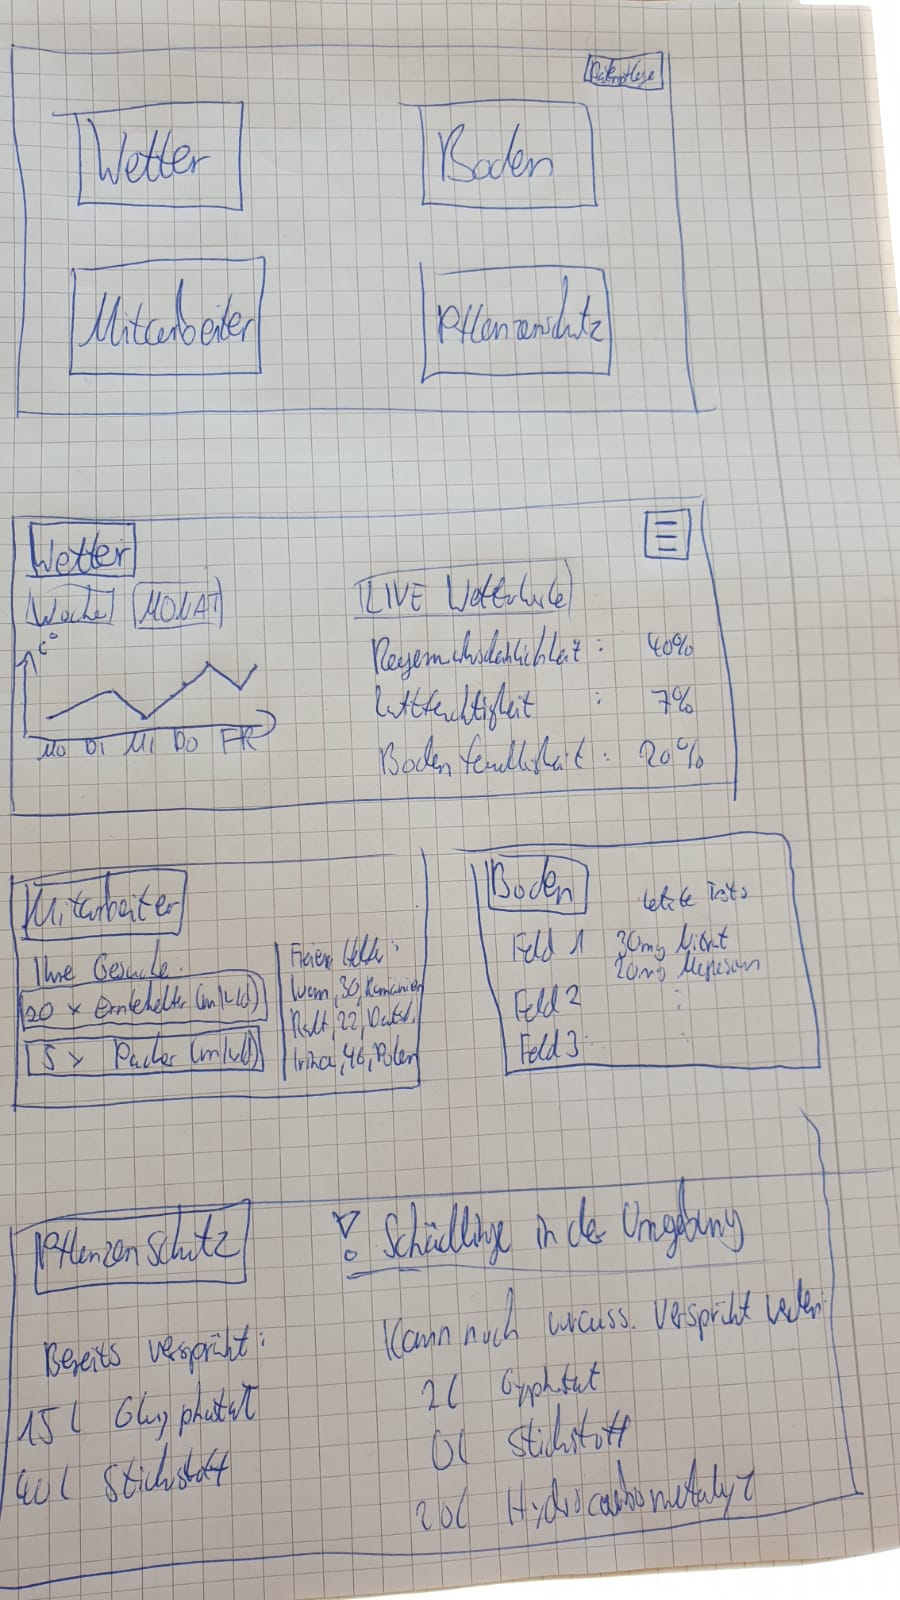 Datenpflege
Wetter
Boden
Mitarbeiter
Pflanzenschutz
Wetter
Woche
MONAT
C°
Mo DI MI DO FR
LIVE
Regenwahrscheinlichkeit : 40%
Luftfeuchtigkeit : 7%
Bodenfeuchtigkeit : 20%
Mitarbeiter
Ihre Gesuche:
20 x Erntehelfer (m/w/d)
5 x Packer (m/w/d)
Helfer:
30, Rumänien
Ralf, 22, Deutschl.
Irina, 46, Polen
Boden
letzte Tests
Feld 1 30mg Nitrat
20mg
Feld 2 :
Feld 3:
Pflanzenschutz
! Schädlinge in der Umgebung
Bereits versprüht:
15 l Glyphosat
40 l Stickstoff
Kann noch vorauss. versprüht werden:
2l
0l Stickstoff
20l